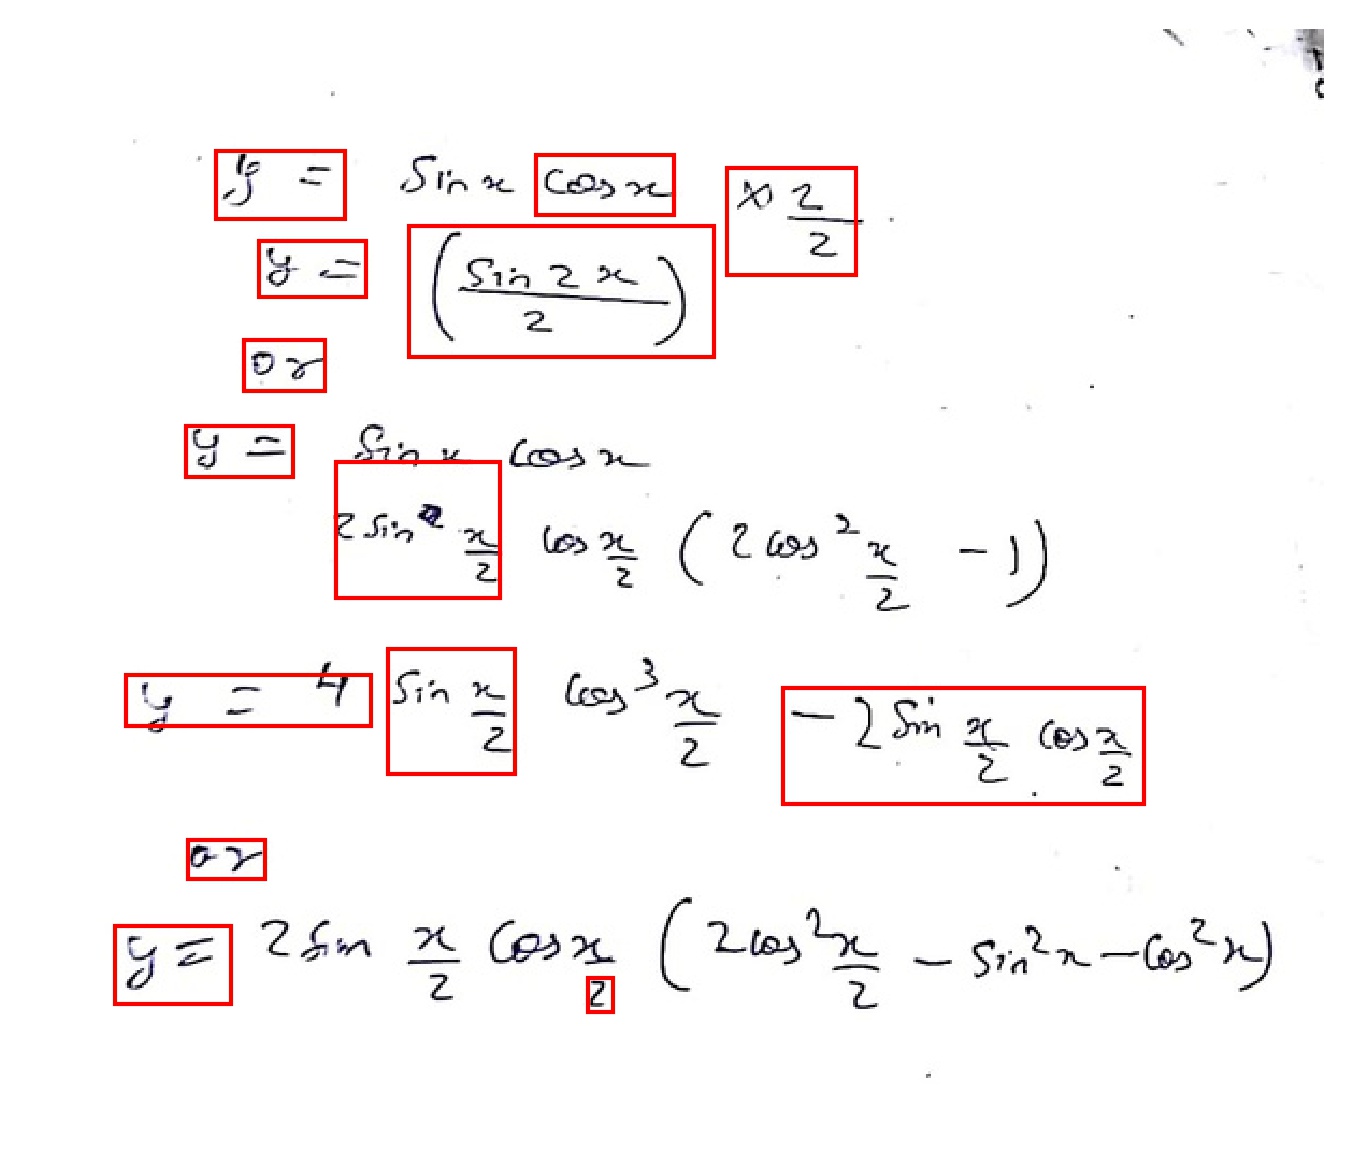 y = Sin x cos x × 2/2
y = (Sin 2x / 2)
or
y = Sin x cos x
2 Sin x/2 cos x/2 (2 cos² x/2 - 1)
y = 4 Sin x/2 cos³ x/2 - 2 Sin x/2 cos x/2
or
y = 2 Sin x/2 cos x/2 (2 cos² x/2 - Sin² x - cos² x)